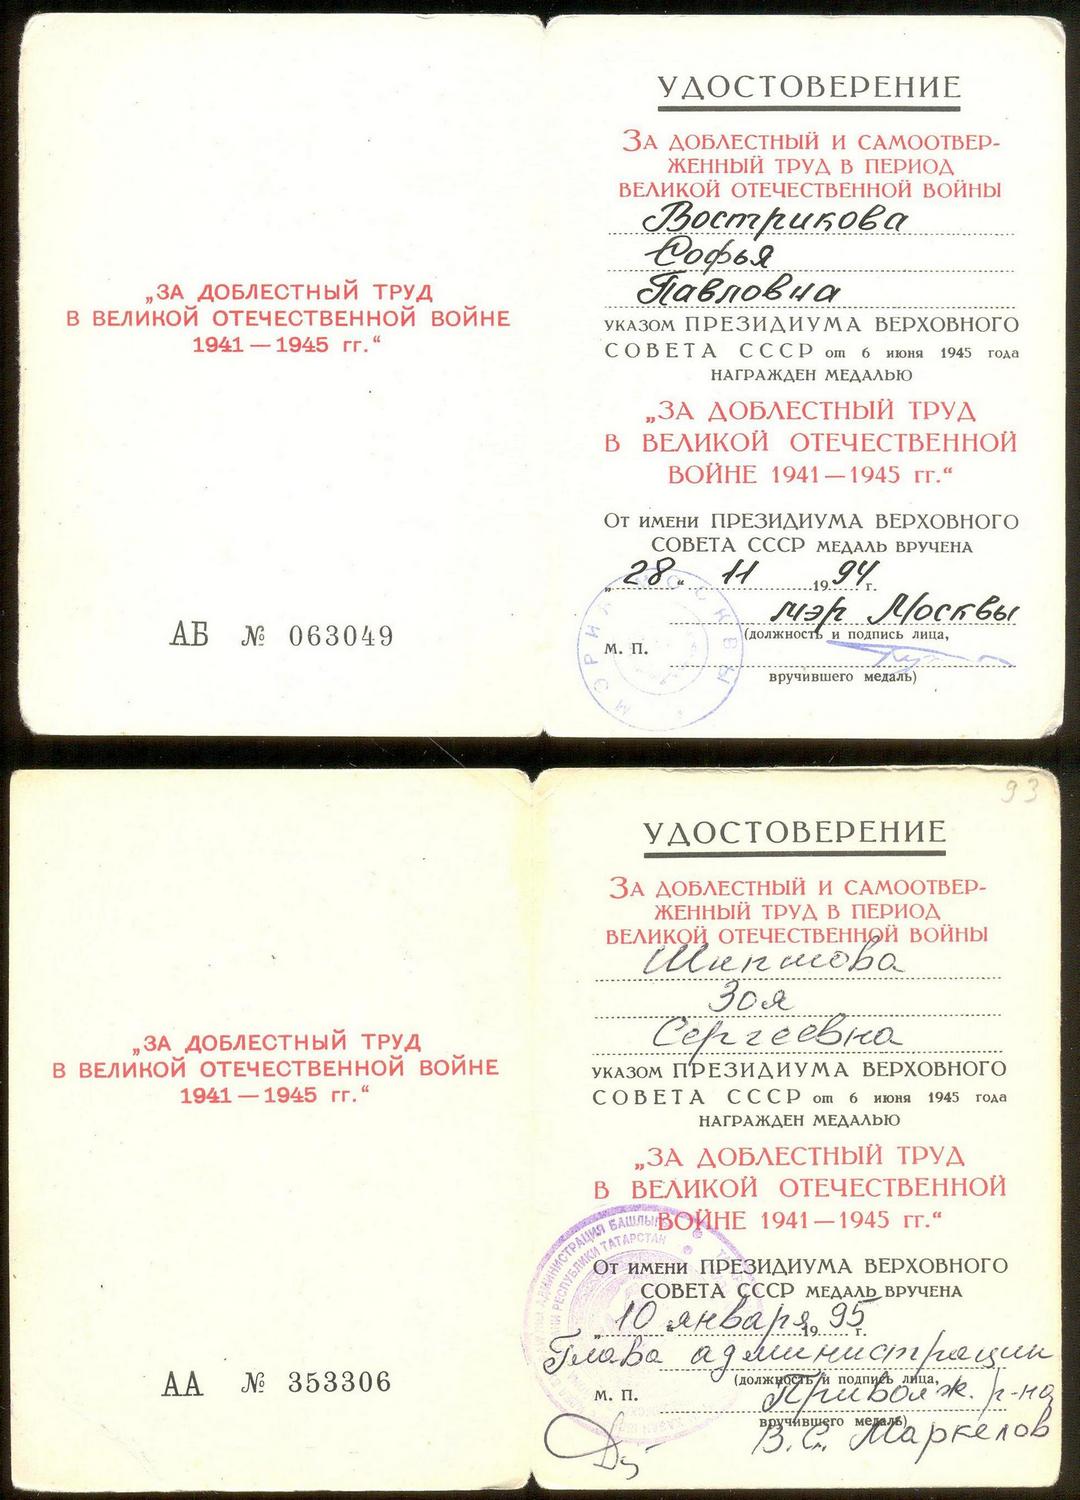 „ЗА ДОБЛЕСТНЫЙ ТРУД
В ВЕЛИКОЙ ОТЕЧЕСТВЕННОЙ ВОЙНЕ
1941—1945 гг.“
АБ № 063049
УДОСТОВЕРЕНИЕ
ЗА ДОБЛЕСТНЫЙ И САМООТВЕР-
ЖЕННЫЙ ТРУД В ПЕРИОД
ВЕЛИКОЙ ОТЕЧЕСТВЕННОЙ ВОЙНЫ
Вострикова
Софья
Павловна
УКАЗОМ ПРЕЗИДИУМА ВЕРХОВНОГО
СОВЕТА СССР от 6 июня 1945 года
НАГРАЖДЕН МЕДАЛЬЮ
„ЗА ДОБЛЕСТНЫЙ ТРУД
В ВЕЛИКОЙ ОТЕЧЕСТВЕННОЙ
ВОЙНЕ 1941—1945 гг.“
ОТ ИМЕНИ ПРЕЗИДИУМА ВЕРХОВНОГО
СОВЕТА СССР МЕДАЛЬ ВРУЧЕНА
„28“ 11 1994 г.
мэр Москвы
(должность и подпись лица,
М. П.
вручившего медаль)
МЭРИЯ МОСКВЫ
„ЗА ДОБЛЕСТНЫЙ ТРУД
В ВЕЛИКОЙ ОТЕЧЕСТВЕННОЙ ВОЙНЕ
1941—1945 гг.“
АА № 353306
93
УДОСТОВЕРЕНИЕ
ЗА ДОБЛЕСТНЫЙ И САМООТВЕР-
ЖЕННЫЙ ТРУД В ПЕРИОД
ВЕЛИКОЙ ОТЕЧЕСТВЕННОЙ ВОЙНЫ
Зоя
Сергеевна
УКАЗОМ ПРЕЗИДИУМА ВЕРХОВНОГО
СОВЕТА СССР от 6 июня 1945 года
НАГРАЖДЕН МЕДАЛЬЮ
„ЗА ДОБЛЕСТНЫЙ ТРУД
В ВЕЛИКОЙ ОТЕЧЕСТВЕННОЙ
ВОЙНЕ 1941—1945 гг.“
ОТ ИМЕНИ ПРЕЗИДИУМА ВЕРХОВНОГО
СОВЕТА СССР МЕДАЛЬ ВРУЧЕНА
„10“ января 1995 г.
Глава администрации
(должность и подпись лица,
М. П. Приволж. р-на
вручившего медаль)
В.С. Маркелов
АДМИНИСТРАЦИЯ
РЕСПУБЛИКИ ТАТАРСТАН